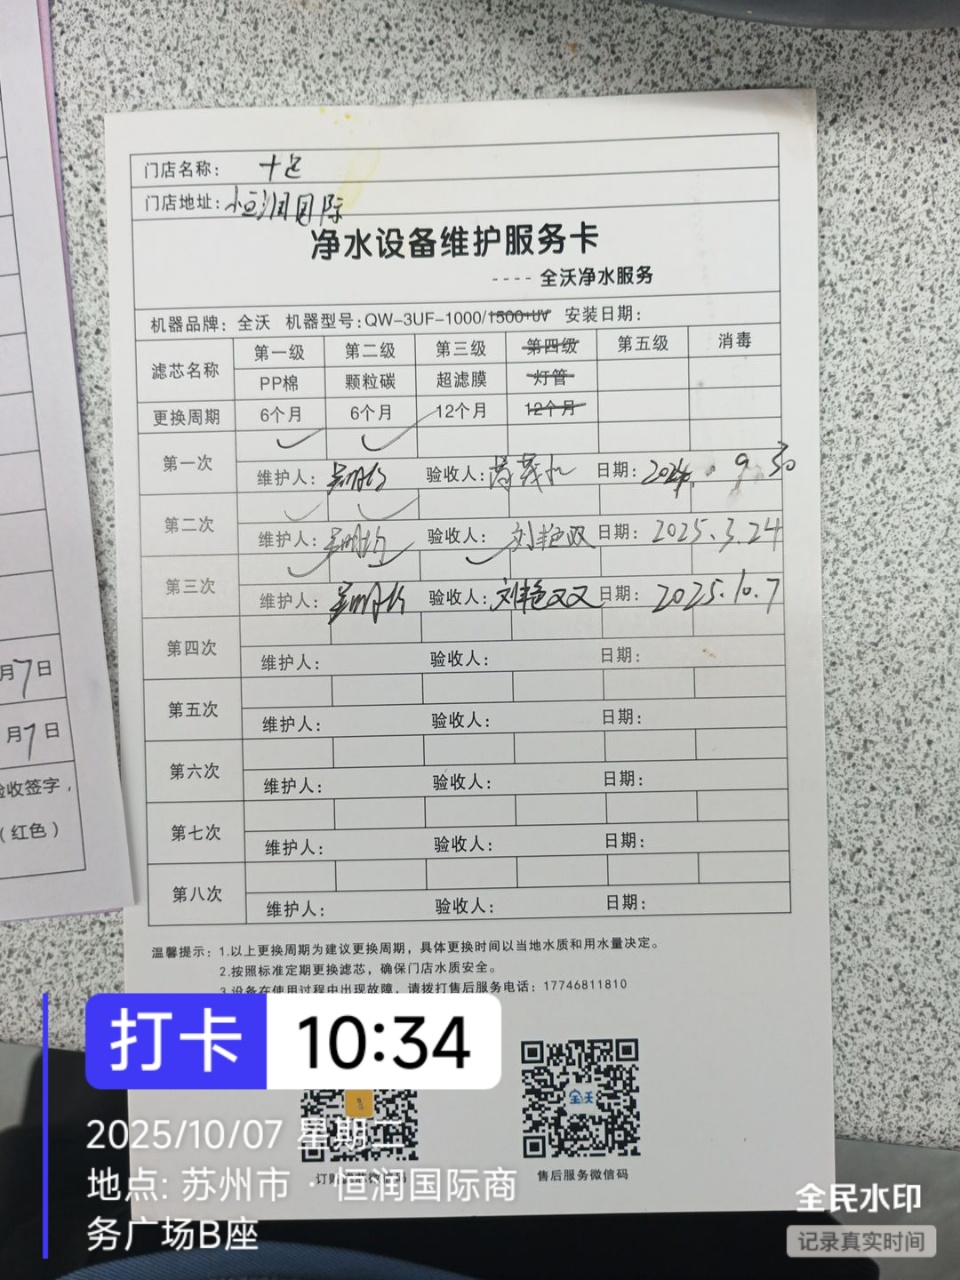 门店名称：
门店地址：恒润国际
净水设备维护服务卡
---- 全沃净水服务
机器品牌：全沃 机器型号：QW-3UF-1000/1500+UV 安装日期：
滤芯名称 第一级 第二级 第三级 第四级 第五级 消毒
PP棉 颗粒碳 超滤膜 灯管
更换周期 6个月 6个月 12个月 12个月
第一次
维护人： 验收人： 日期：2024.9.30
第二次
维护人： 验收人：刘艳双 日期：2025.3.24
第三次
维护人： 验收人：刘艳双 日期：2025.10.7
第四次
维护人： 验收人： 日期：
第五次
维护人： 验收人： 日期：
第六次
维护人： 验收人： 日期：
第七次
维护人： 验收人： 日期：
第八次
维护人： 验收人： 日期：
温馨提示：1.以上更换周期为建议更换周期，具体更换时间以当地水质和用水量决定。
2.按照标准定期更换滤芯，确保门店水质安全。
3.设备在使用过程中出现故障，请拨打售后服务电话：17746811810
全沃
售后服务微信码
月7日
月7日
验收签字，
（红色）
打卡 10:34
2025/10/07 星期二
地点: 苏州市·恒润国际商
务广场B座
全民水印
记录真实时间